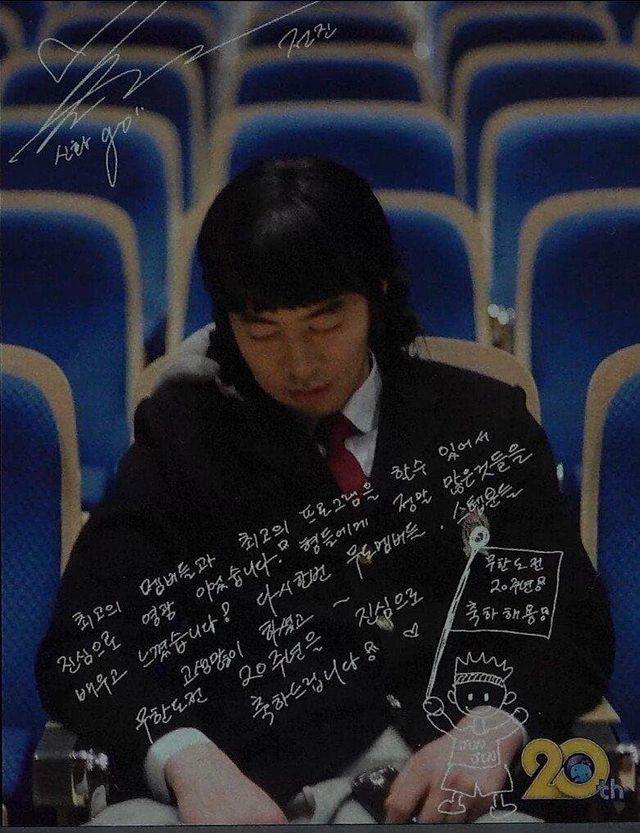 전진
신화 go"
최고의 멤버들과 최고의 프로그램을 할수 있어서
진심으로 영광 이였습니다! 형들에게 정말 많은것들을
배우고 느꼈습니다! 다시한번 무도멤버들, 스텝분들
고생많이 하셨고 ~ 진심으로
무한도전 20주년을 ♡
축하드립니다!
무한도전
20주년
축하해용
JUN
JIN
20th